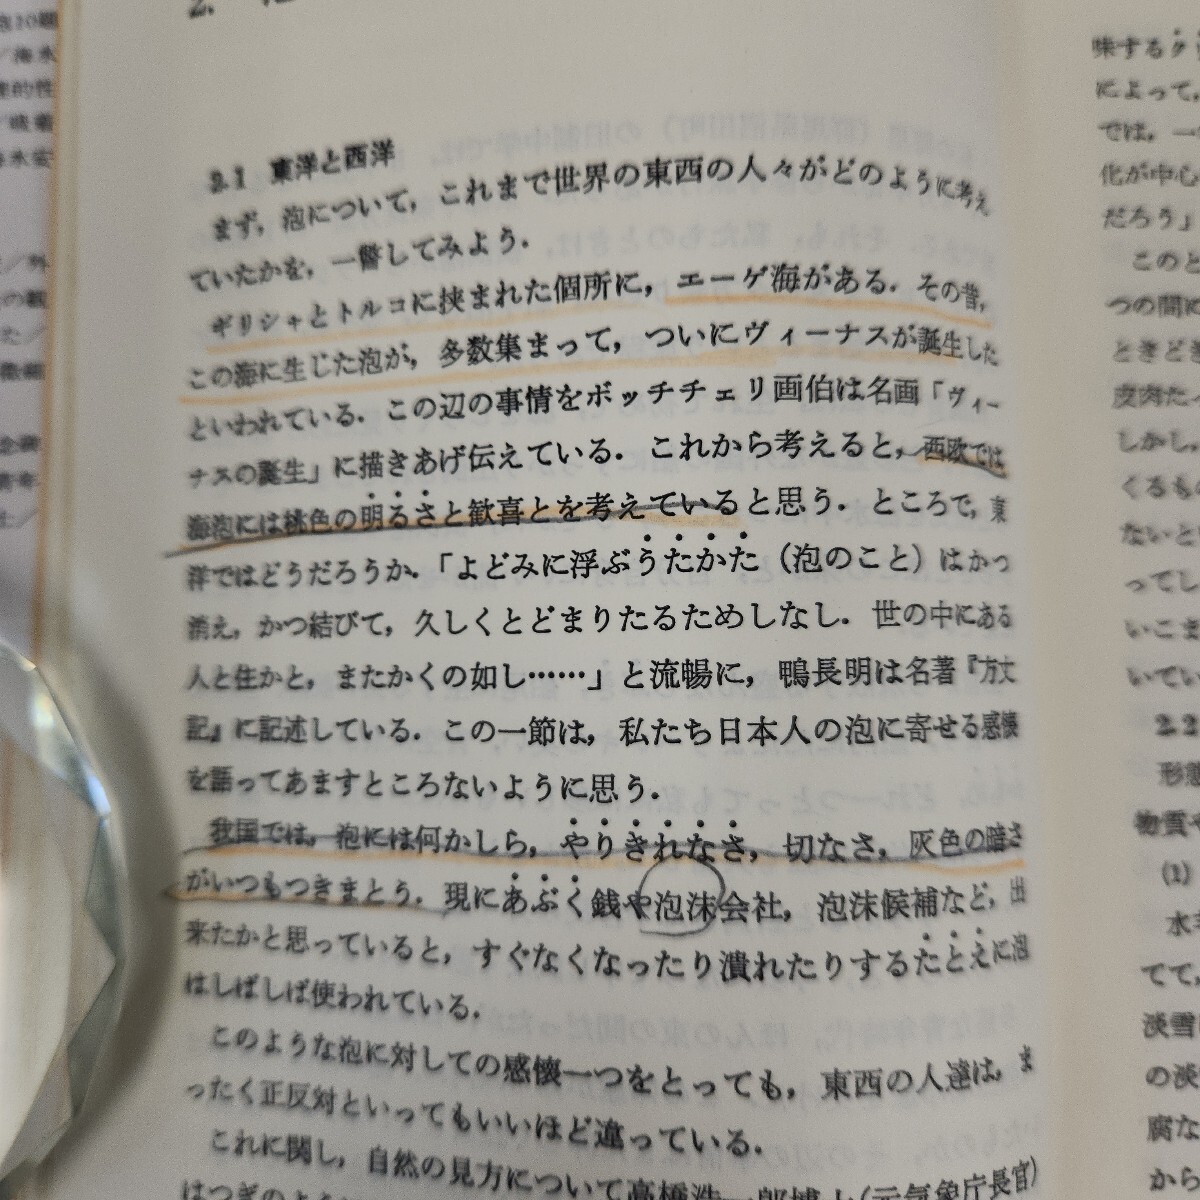 2.
2.1 東洋と西洋
まず，泡について，これまで世界の東西の人々がどのように考え
ていたかを，一瞥してみよう．
ギリシャとトルコに挟まれた個所に，エーゲ海がある．その昔，
この海に生じた泡が，多数集まって，ついにヴィーナスが誕生した
といわれている．この辺の事情をボッチチェリ画伯は名画「ヴィー
ナスの誕生」に描きあげ伝えている．これから考えると，西欧では
海泡には桃色の明るさと歓喜とを考えていると思う．ところで，東
洋ではどうだろうか．「よどみに浮ぶうたかた（泡のこと）はかつ
消え，かつ結びて，久しくとどまりたるためしなし．世の中にある
人と住かと，またかくの如し……」と流暢に，鴨長明は名著『方丈
記』に記述している．この一節は，私たち日本人の泡に寄せる感懐
を語ってあますところないように思う．
我国では，泡には何かしら，やりきれなさ，切なさ，灰色の暗さ
がいつもつきまとう．現にあぶく銭や泡沫会社，泡沫候補など，出
来たかと思っていると，すぐなくなったり潰れたりするたとえに泡
はしばしば使われている．
このような泡に対しての感懐一つをとっても，東西の人達は，ま
ったく正反対といってもいいほど違っている．
これに関し，自然の見方について高橋浩一郎博士（元気象庁長官）
はつぎのように
味するク
によって，
では，一
化が中心
だろう」
このと
つの間に
ときどき
度肉た
しかし，
くるもの
ないと
ってし
いこま
いてい
2.2
形態
物質や
(1)
水
てて，
淡雪
の淡
腐な
から